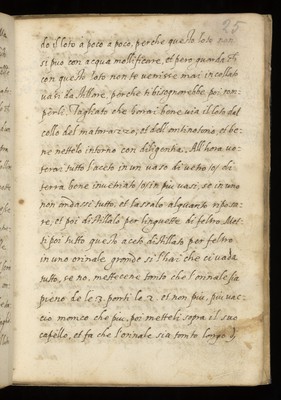 25
do il loto a poco a poco, perche questo loto non
si puo con acqua mollificare, et pero guarda ch
con questo loto non te venisse mai incollati
vasi da stillare, perche ti bisognarebbe poi rom-
perli. Tagliato che havrai bene via il loto dal
collo del matarazzo, et dell'ontinotorio, et be-
ne nettolo intorno con diligentia, All'hora vo-
terai tutto l'aceto in un vaso di vetro, o di
terra bene invetriato, o in piu vasi, se in uno
non andassi tutto, et lassalo alquanto riposa-
re, et poi distillalo per linguette di feltro. Met-
ti poi tutto questo aceto distillato per feltro
in uno orinale grande si l'hai che ci vada
tutto, se no, mettecene tanto che l'orinale sia
pieno de le 3. parti le 2. et non piu, piu vac-
cio manco che piu, poi metteli sopra il suo
capello, et fa che l'orinale sia tanto longo